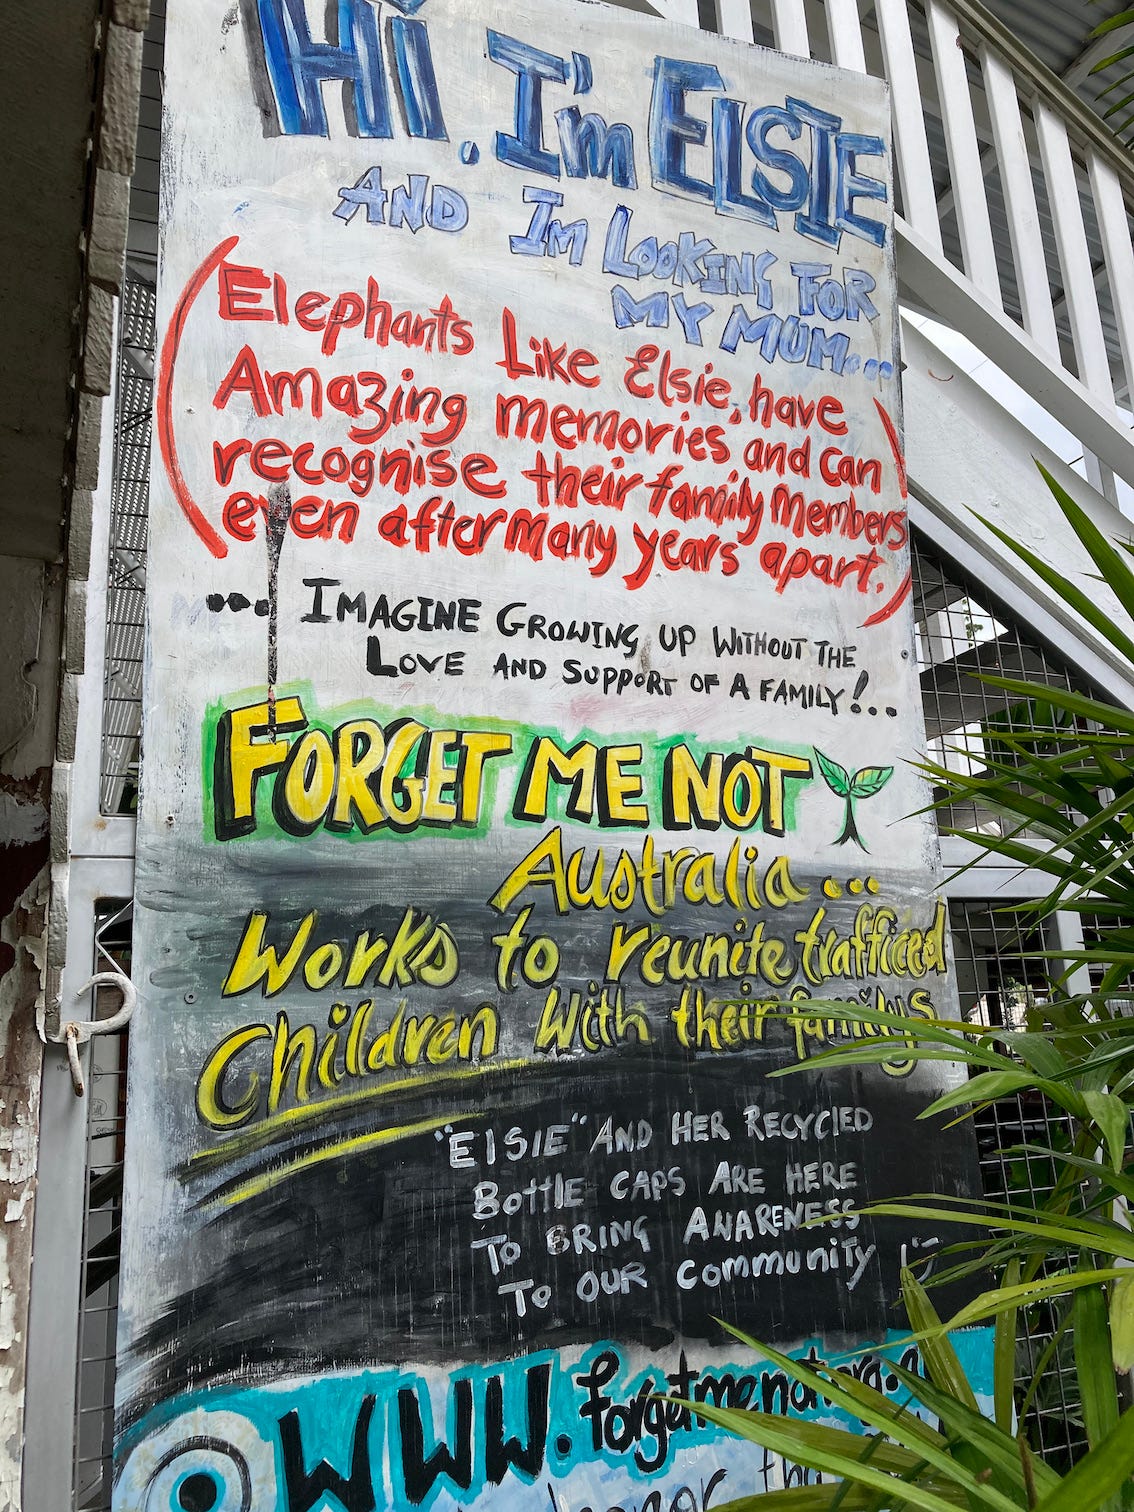 Hi. I'm ELSIE
AND I'm LOOKING FOR
MY MUM...
(Elephants Like Elsie, have
Amazing memories and can
recognise their family members
even after many years apart.)
... IMAGINE GROWING UP WITHOUT THE
LOVE AND SUPPORT OF A FAMILY!...
FORGET ME NOT
Australia...
Works to reunite trafficed
Children with their familys
"ElSIE" AND HER RECYCLED
BOttlE CAPS ARE HERE
TO BRING AWARENESS
TO OUR community
WWW.forgetmenot.org.a